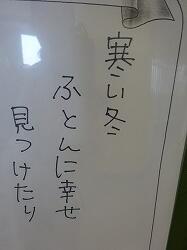 寒い冬
ふとんに幸せ
見つけたり